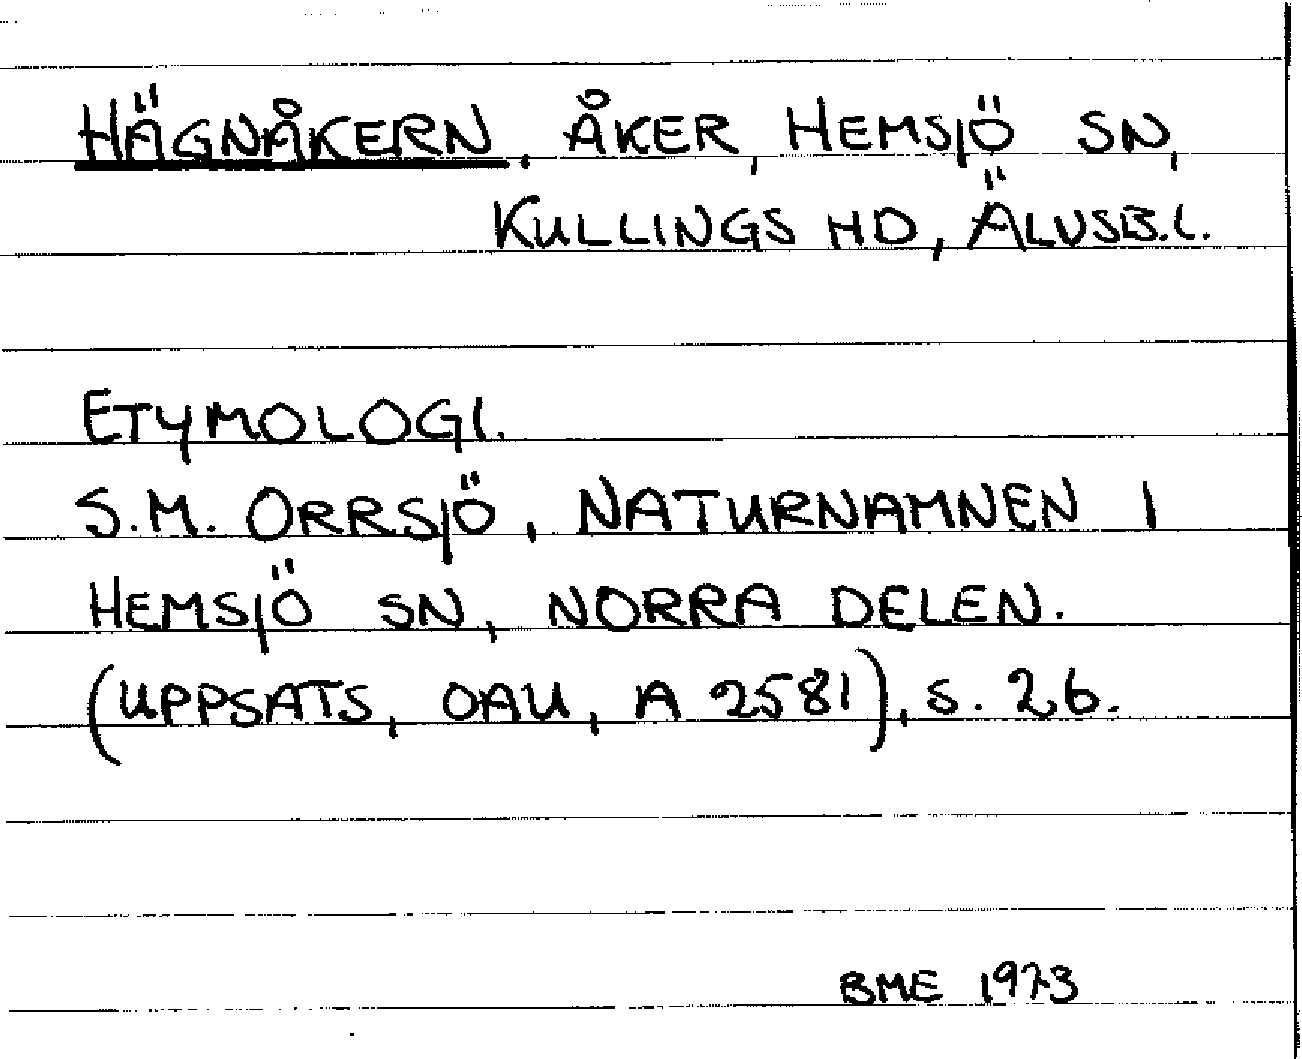 HÄGNÅKERN, ÅKER, HEMSJÖ SN,
KULLINGS HD, ÄLVSB.L.
ETYMOLOGI.
S.M. ORRSJÖ, NATURNAMNEN I
HEMSJÖ SN, NORRA DELEN.
(UPPSATS, OAU, A 2581), S. 26.
BME 1973